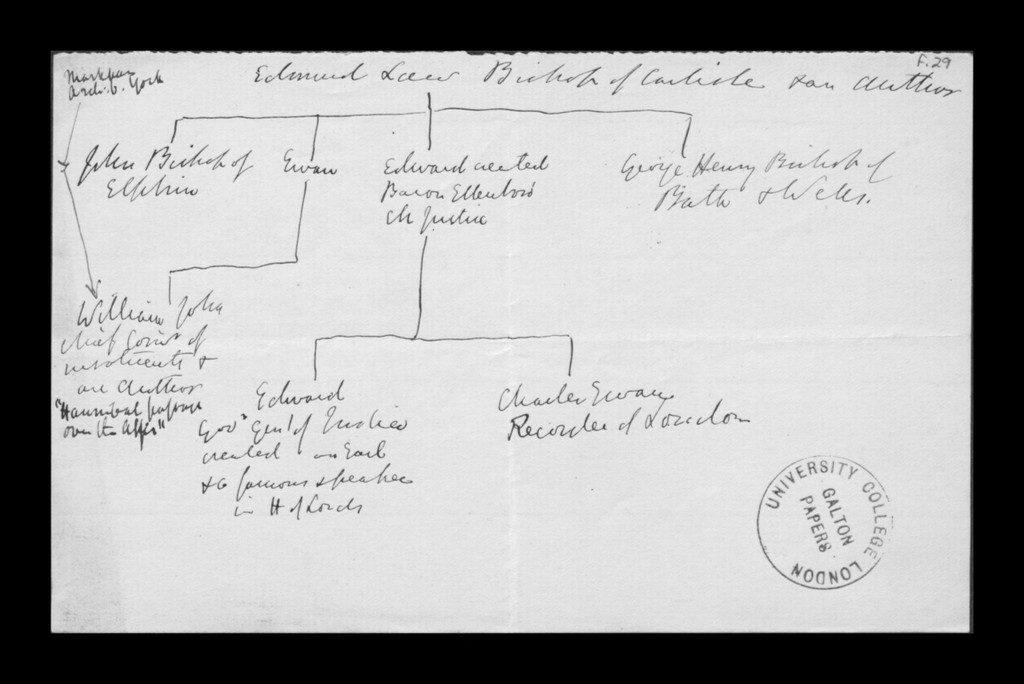 F.29
Markham
Archb. York
Edmund Law Bishop of Carlisle & an Author
John Bishop of
Elphin
Ewan
Edward created
Baron Ellenboro'
Ch Justice
George Henry Bishop of
Bath & Wells.
William John
chief Comr of
insolvents &
an Author
"Hannibal passage
over the Alps"
Edward
Govr Genl of India
created an Earl
& a famous speaker
in H of Lords
Charles Ewan
Recorder of London
UNIVERSITY COLLEGE LONDON
GALTON
PAPERS